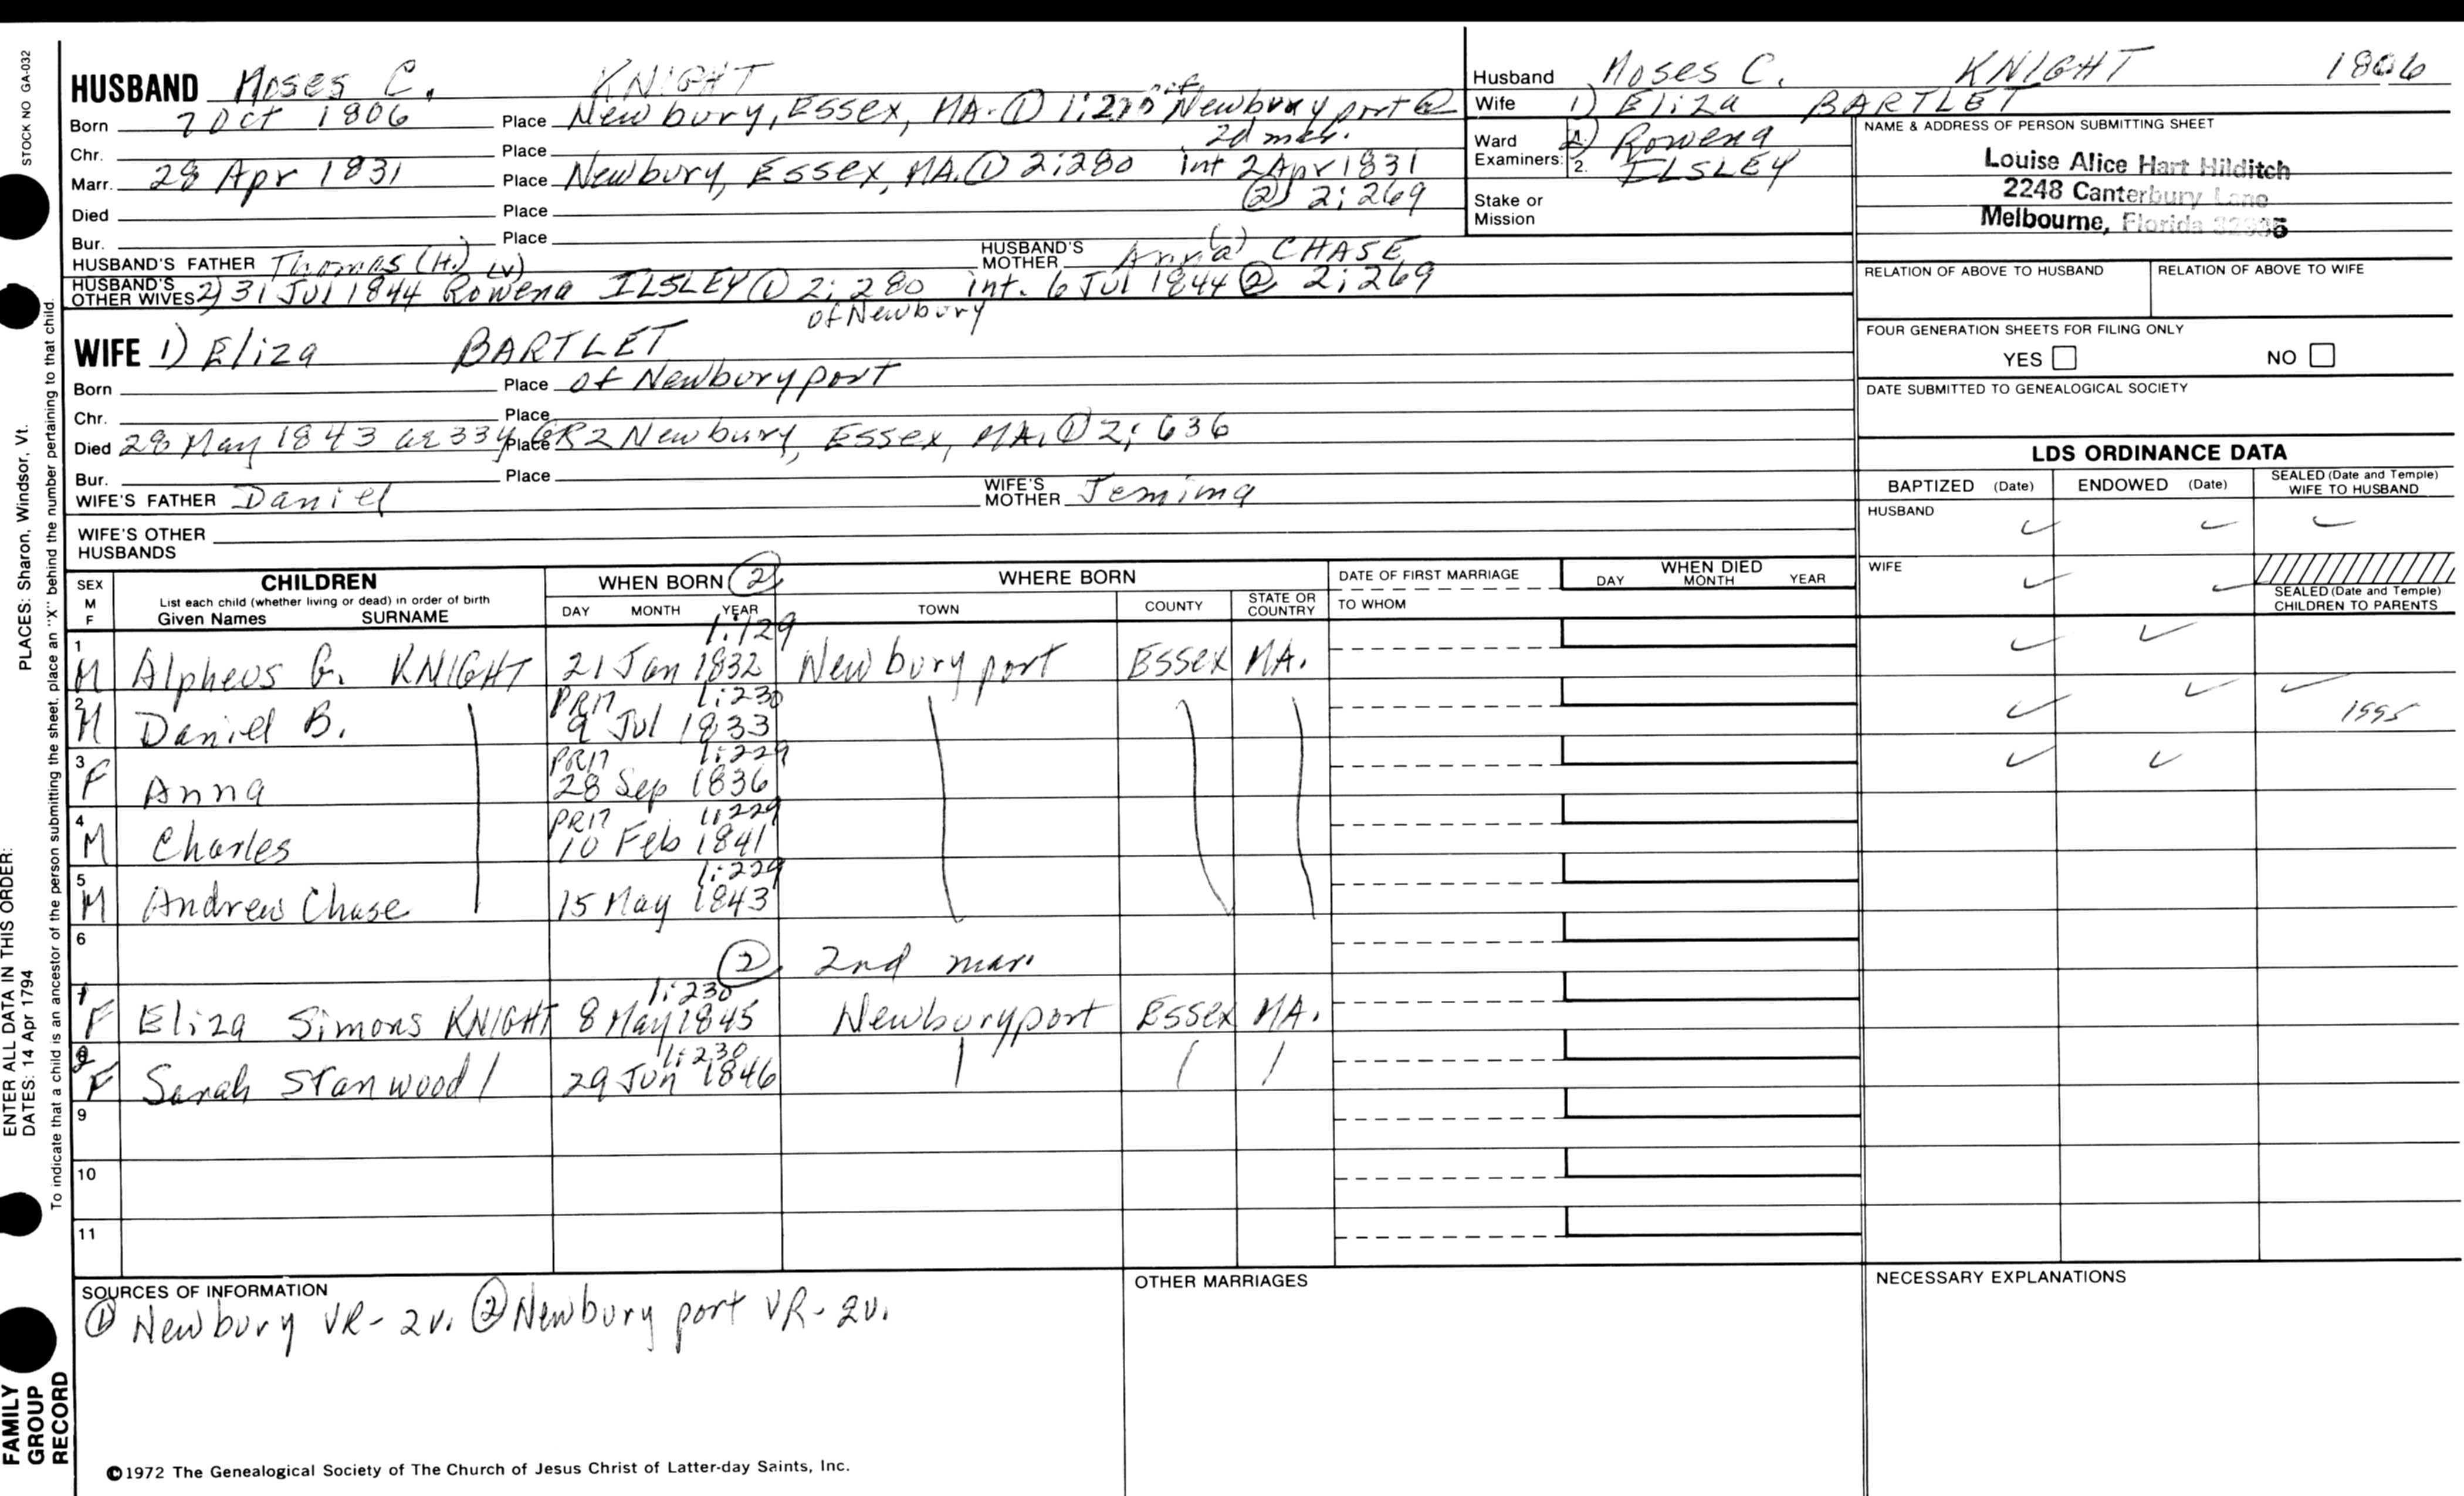 STOCK NO GA-032
HUSBAND Moses C. KNIGHT
Born 7 Oct 1806 Place Newbury, Essex, MA. ① of Newburyport @ 2d mar.
Chr. Place
Marr. 28 Apr 1831 Place Newbury, Essex, MA. ① 2:280 int 2 Apr 1831 ② 2:269
Died Place
Bur. Place
HUSBAND'S FATHER Thomas (H.) (v) HUSBAND'S MOTHER CHASE
HUSBAND'S OTHER WIVES 2) 31 Jul 1844 Rowena ILSLEY ① 2:280 int. 6 Jul 1844 ② 2:269
of Newbury
WIFE 1) Eliza BARTLET
Born Place of Newburyport
Chr. Place
Died 28 May 1843 ae 33y Place GR2 Newbury, Essex, MA. ① 2:636
Bur. Place
WIFE'S FATHER Daniel WIFE'S MOTHER Jemima
WIFE'S OTHER HUSBANDS
Husband Moses C. KNIGHT 1806
Wife 1) Eliza BARTLET
Ward 2) Rowena
Examiners: 1. 2. ILSLEY
Stake or Mission
NAME & ADDRESS OF PERSON SUBMITTING SHEET
Louise Alice Hart Hilditch
2248 Canterbury Lane
Melbourne, Florida
RELATION OF ABOVE TO HUSBAND RELATION OF ABOVE TO WIFE
FOUR GENERATION SHEETS FOR FILING ONLY
YES NO
DATE SUBMITTED TO GENEALOGICAL SOCIETY
LDS ORDINANCE DATA
BAPTIZED (Date) ENDOWED (Date) SEALED (Date and Temple) WIFE TO HUSBAND
HUSBAND
WIFE
SEALED (Date and Temple) CHILDREN TO PARENTS
SEX M F CHILDREN WHEN BORN ② WHERE BORN DATE OF FIRST MARRIAGE WHEN DIED
List each child (whether living or dead) in order of birth
Given Names SURNAME DAY MONTH YEAR TOWN COUNTY STATE OR COUNTRY TO WHOM DAY MONTH YEAR
1:129
1 M Alpheus G. KNIGHT 21 Jan 1832 Newburyport Essex MA.
PR17 1:230
2 M Daniel B. 9 Jul 1833 1995
PR17 1:229
3 F Anna 28 Sep 1836
PR17 1:229
4 M Charles 10 Feb 1841
1:229
5 M Andrew Chase 15 May 1843
6 ② 2nd mar.
1:230
1 F Eliza Simons KNIGHT 8 May 1845 Newburyport Essex MA.
1:230
F Sarah Stanwood 29 Jun 1846
9
10
11
SOURCES OF INFORMATION
① Newbury VR- 2v. ② Newburyport VR- 2v.
OTHER MARRIAGES
NECESSARY EXPLANATIONS
©1972 The Genealogical Society of The Church of Jesus Christ of Latter-day Saints, Inc.
FAMILY GROUP RECORD
ENTER ALL DATA IN THIS ORDER:
DATES: 14 Apr 1794
PLACES: Sharon, Windsor, Vt.
To indicate that a child is an ancestor of the person submitting the sheet, place an "X" behind the number pertaining to that child.